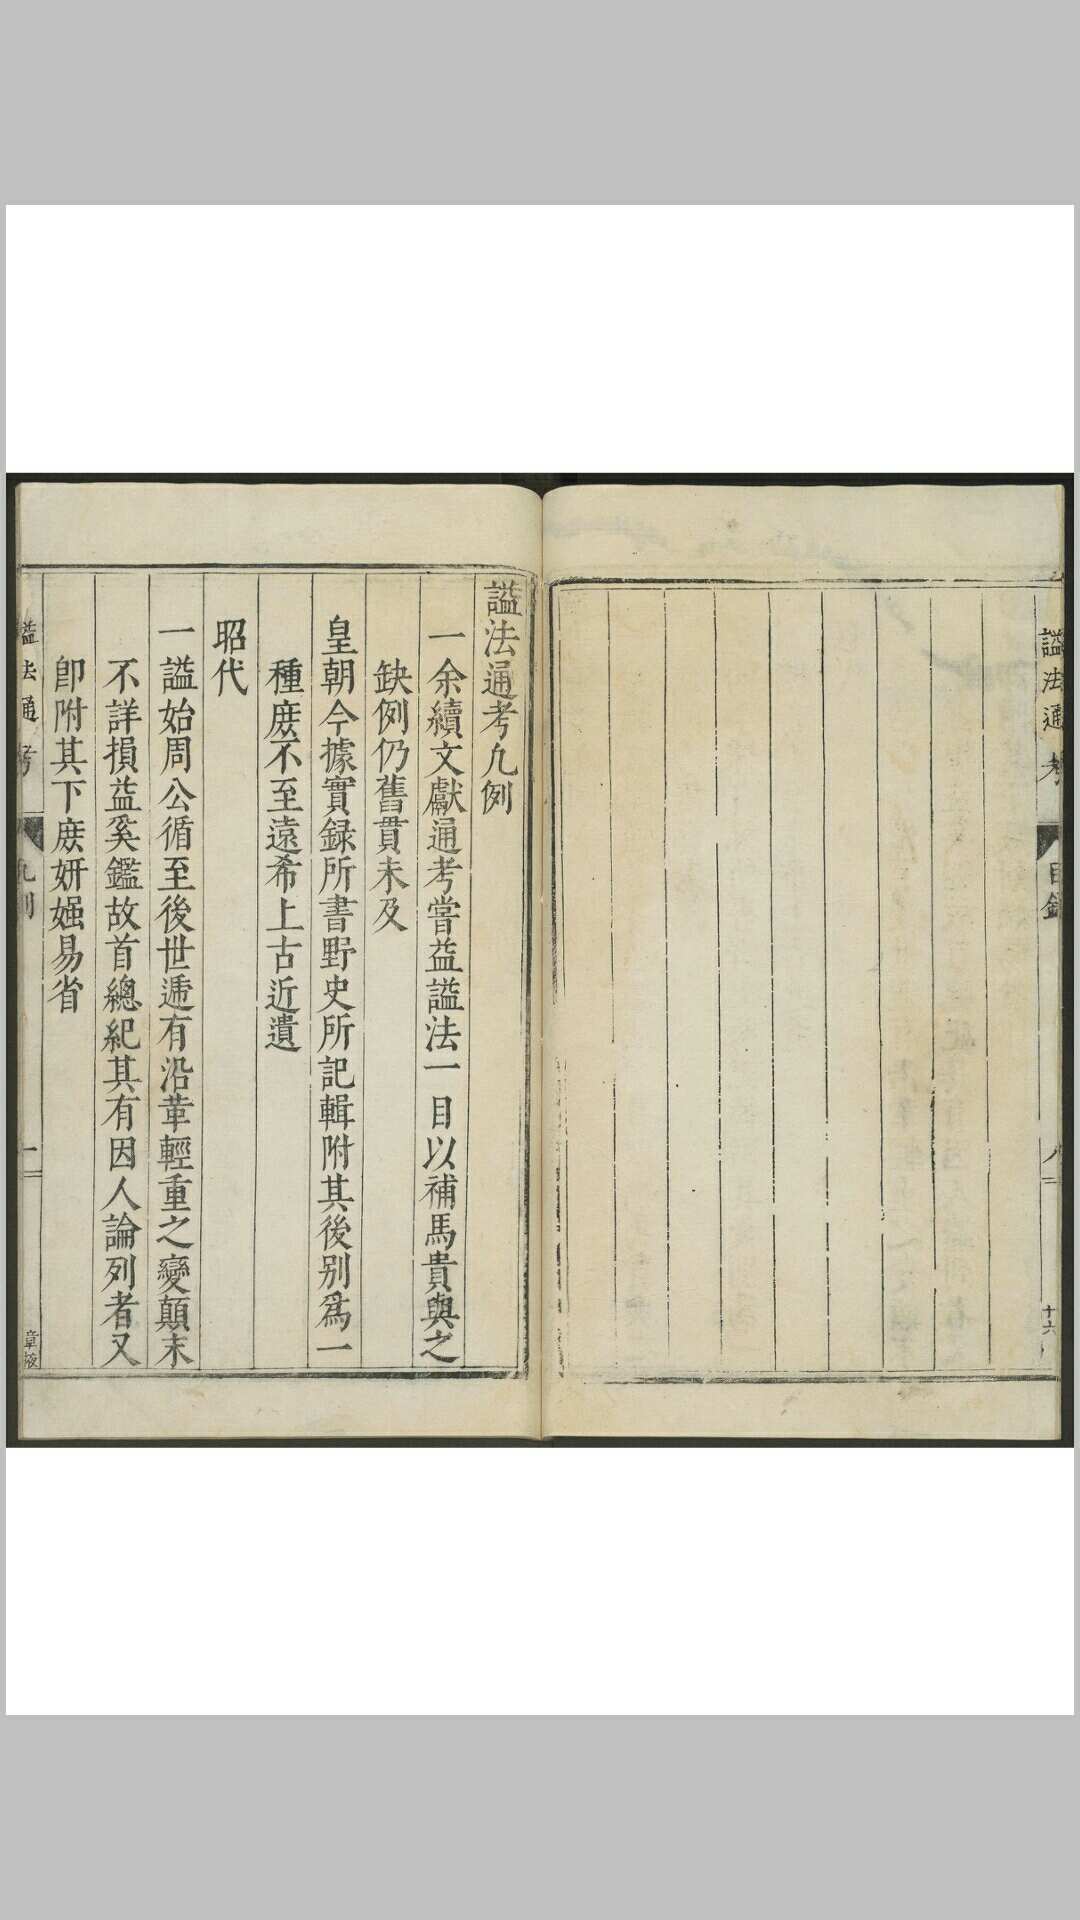 諡法通考
目錄
十六
諡法通考凡例
一余續文獻通考嘗益諡法一目以補馬貴與之
缺例仍舊貫未及
皇朝今據實録所書野史所記輯附其後别爲一
種庻不至遠希上古近遺
昭代
一諡始周公循至後世遞有沿革輕重之變顛末
不詳損益奚鑑故首總紀其有因人論列者又
卽附其下庻妍媸易省
諡法通考
凡例
一